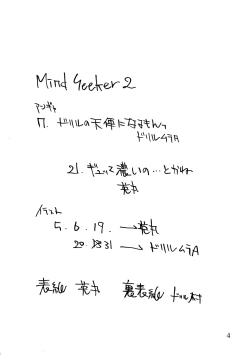 Mind Seeker 2
アンギャ
17. ドリルの天使になるもん。
ドリルムラA
21. ギュッて濃いの…とかね
英丸
イラスト
5. 6. 19. →英丸
20. 31 → ドリルムラA
表紙 英丸 裏表紙 ドリル村
4